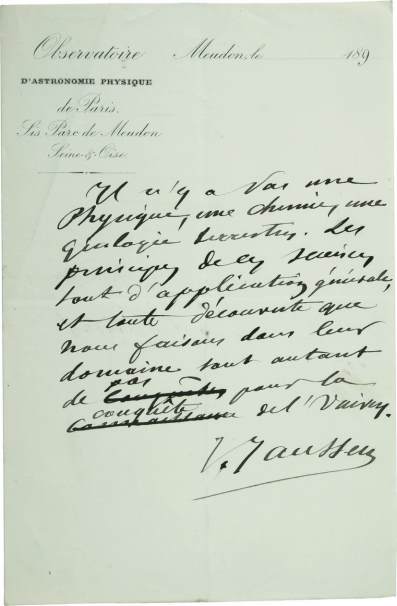 Observatoire Meudon, le 189
D'ASTRONOMIE PHYSIQUE
de Paris,
Sis Parc de Meudon
Seine & Oise
Il n'y a pas une
Physique, une chimie, une
Géologie terrestres. Les
principes de ces sciences
sont d'application générale,
et toute découverte que
nous faisons dans leur
domaine sont autant
de pas conquêtes pour la
conquête connaissance de l'Univers.
J. Janssen